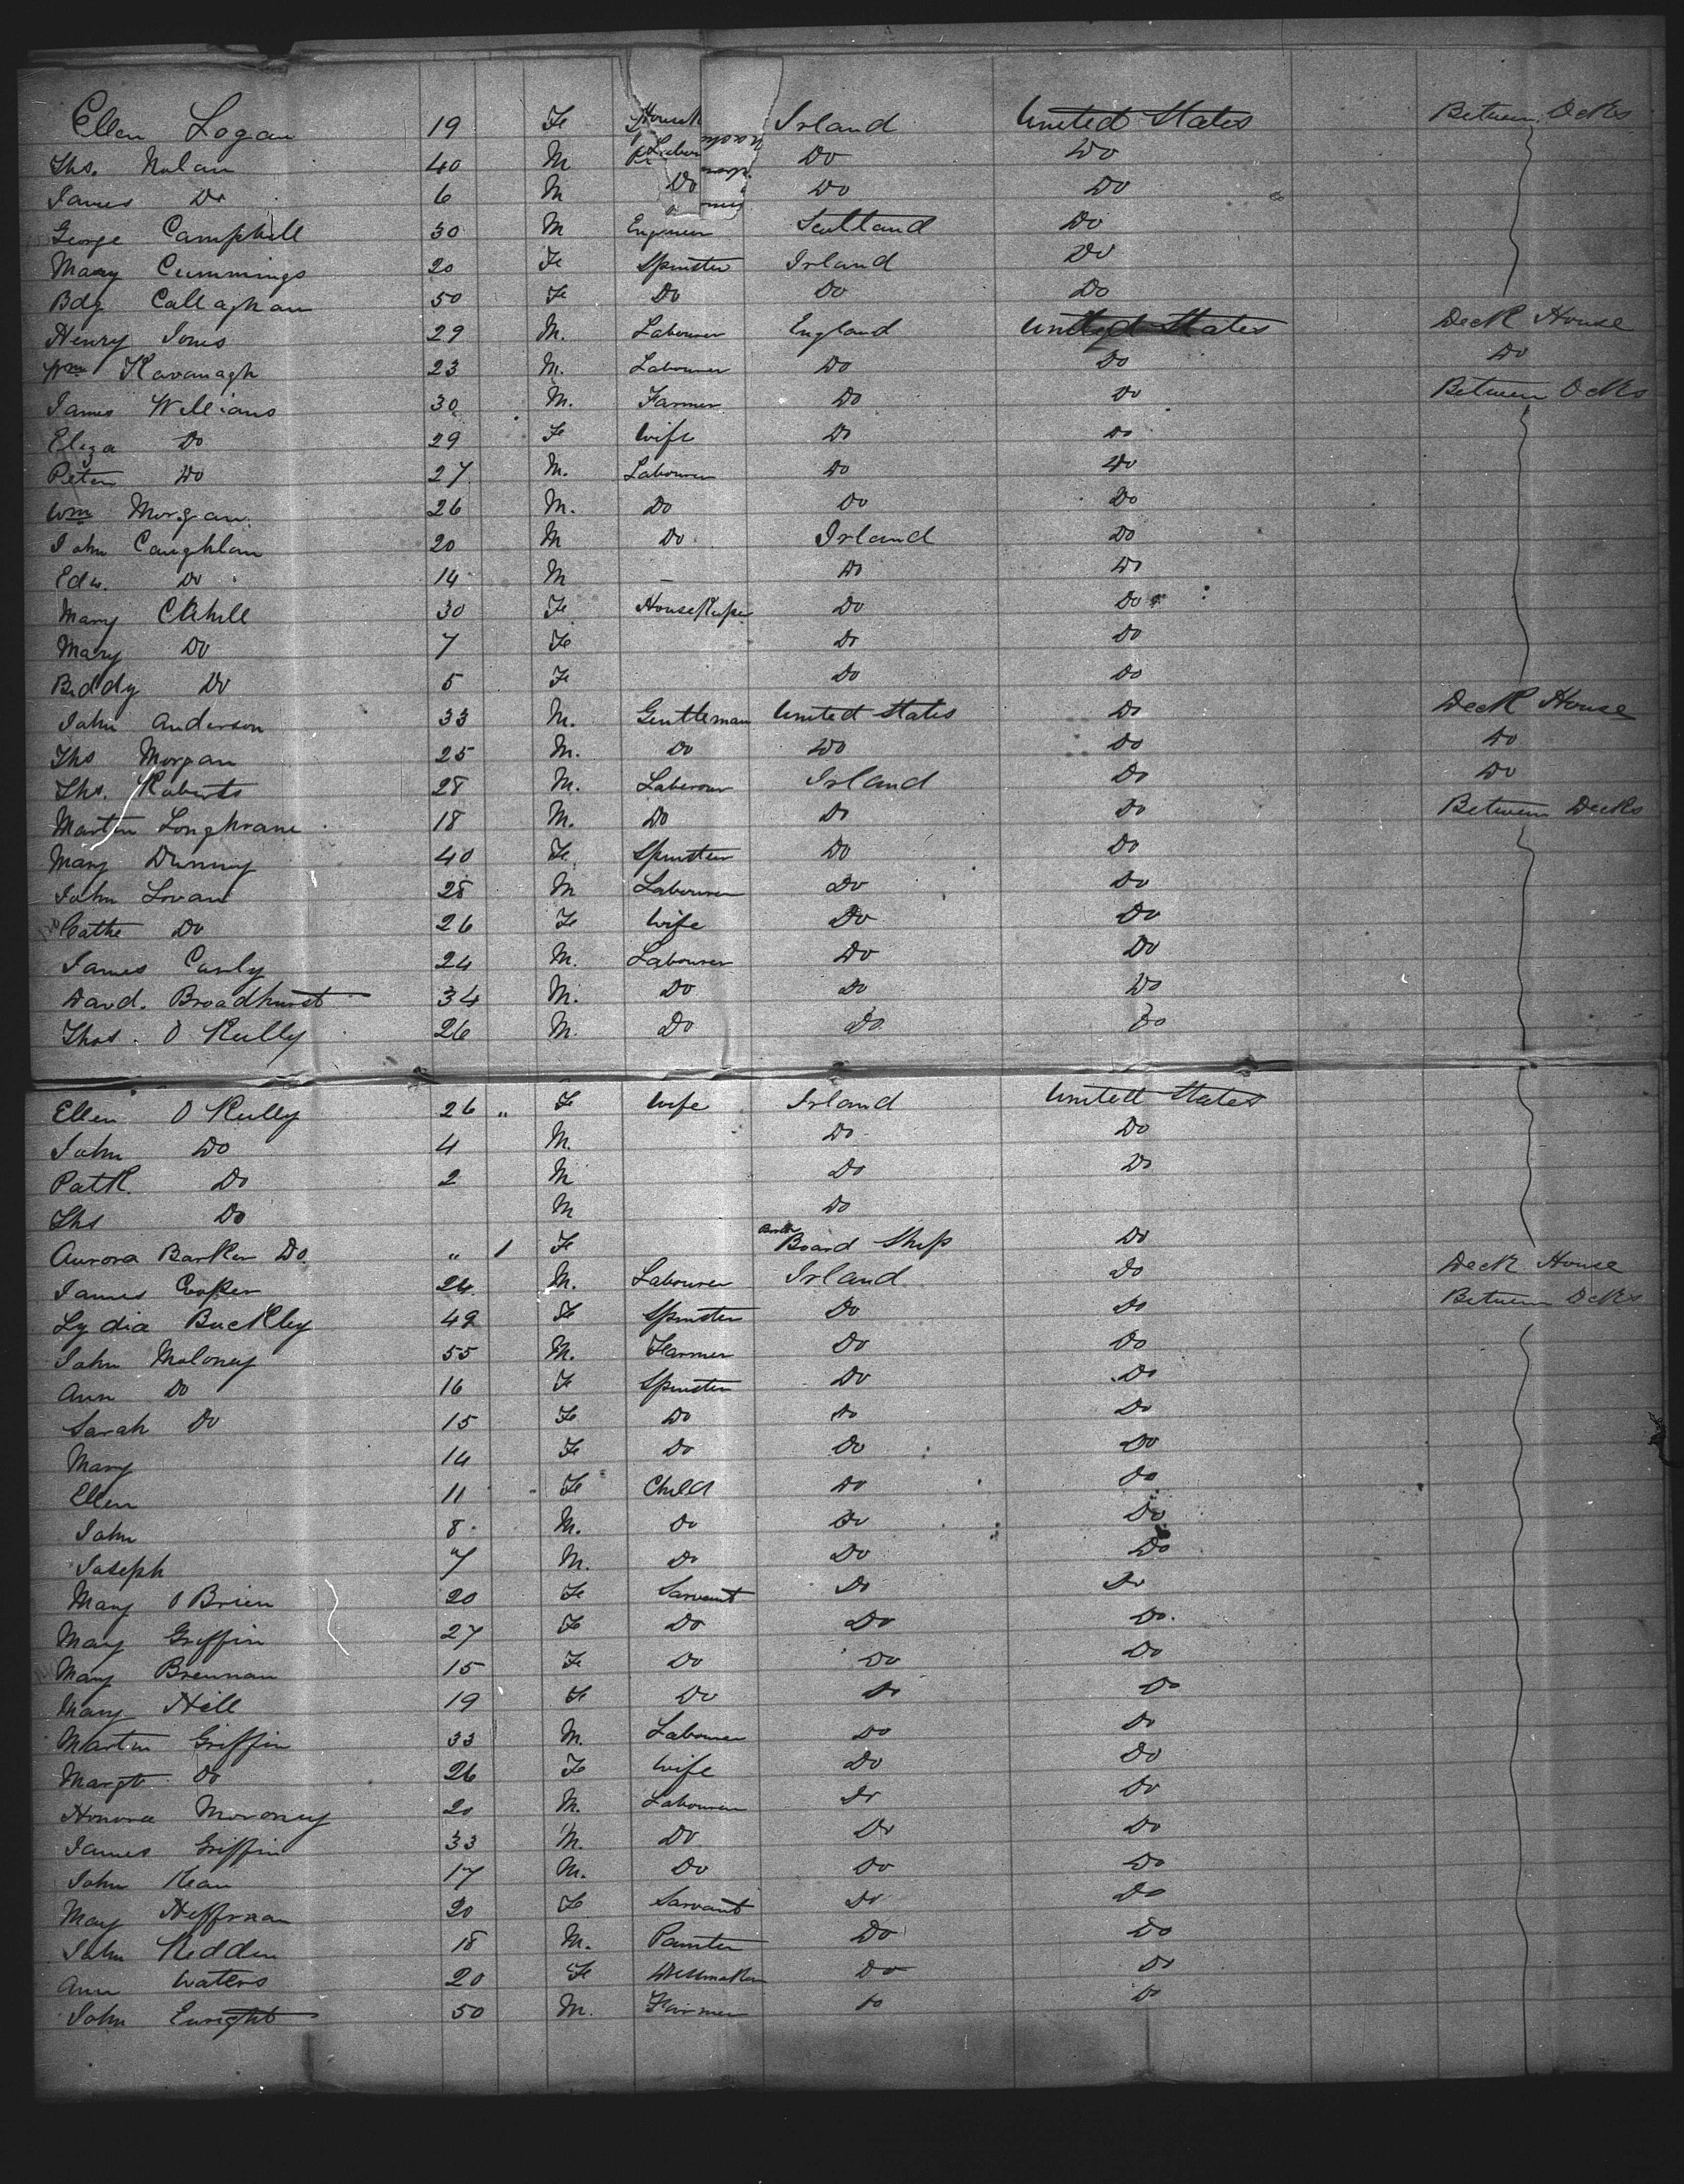 Ellen Logan 19 Fe Ireland United States Between Decks
Ths. Nolan 40 M Labor Do Do
James Do 6 M Do Do Do
George Campbell 30 M Engineer Scotland Do
Mary Cummings 20 Fe Spinster Ireland Do
Bdg Callaghan 50 Fe Do Do Do
Henry Jones 29 M. Labourer England United States Deck House
Wm Kavanagh 23 M. Labourer Do Do Do
James Williams 30 M. Farmer Do Do Between Decks
Eliza Do 29 Fe Wife Do Do
Peter Do 27 M. Labourer Do Do
Wm Morgan 26 M. Do Do Do
John Caughlan 20 M Do Ireland Do
Edw. Do 14 M – Do Do
Mary Cahill 30 Fe HouseKeeper Do Do
Mary Do 7 Fe Do Do
Biddy Do 5 Fe Do Do
John Anderson 33 M. Gentleman United States Do Deck House
Ths Morgan 25 M. Do Do Do Do
Ths. Roberts 28 M. Labourer Ireland Do Do
Martin Loughrane 18 M. Do Do Do Between Decks
Mary 40 Fe Spinster Do Do
John 28 M Labourer Do Do
Cathe Do 26 Fe Wife Do Do
James 24 M. Labourer Do Do
David. Broadhurst 34 M. Do Do Do
Thos. O Kelly 26 M. Do Do Do
Ellen O Kelly 26 " Fe Wife Ireland United States
John Do 4 M. Do Do
Patk. Do 2 M Do Do
Ths Do M Do
Aurora Barker Do. " 1 Fe Board Ship Do
James Cooper 24 M. Labourer Ireland Do Deck House
Lydia Buckley 49 Fe Spinster Do Do Between Decks
John Moloney 55 M. Farmer Do Do
Ann Do 16 Fe Spinster Do Do
Sarah Do 15 Fe Do Do Do
Mary 14 Fe Do Do Do
Ellen 11 Fe Child Do Do
John 8 M. Do Do Do
Joseph 7 M. Do Do Do
Mary O Brien 20 Fe Sarvant Do Do
Mary Griffin 27 Fe Do Do Do
Mary Brennan 15 Fe Do Do Do
Mary Hill 19 Fe Do Do Do
Martin Griffin 33 M. Labourer Do Do
Margt Do 26 Fe Wife Do Do
Honora Moroney 20 M. Labourer Do Do
James Griffin 33 M. Do Do Do
John Kean 17 M. Do Do Do
Mary Heffrnan 20 Fe Sarvant Do Do
John Hedden 18 M. Painter Do Do
Ann Waters 20 Fe Dressmaker Do Do
John Enright 50 M. Farmer Do Do